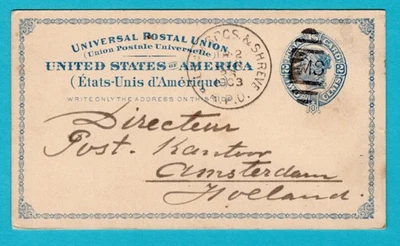 UNIVERSAL POSTAL UNION
(Union Postale Universelle)
UNITED STATES OF AMERICA
(États-Unis d'Amérique)
WRITE ONLY THE ADDRESS ON THIS SIDE
& SHREVE
MS
Directeur
Post. Kantoor
Amsterdam
Holland.